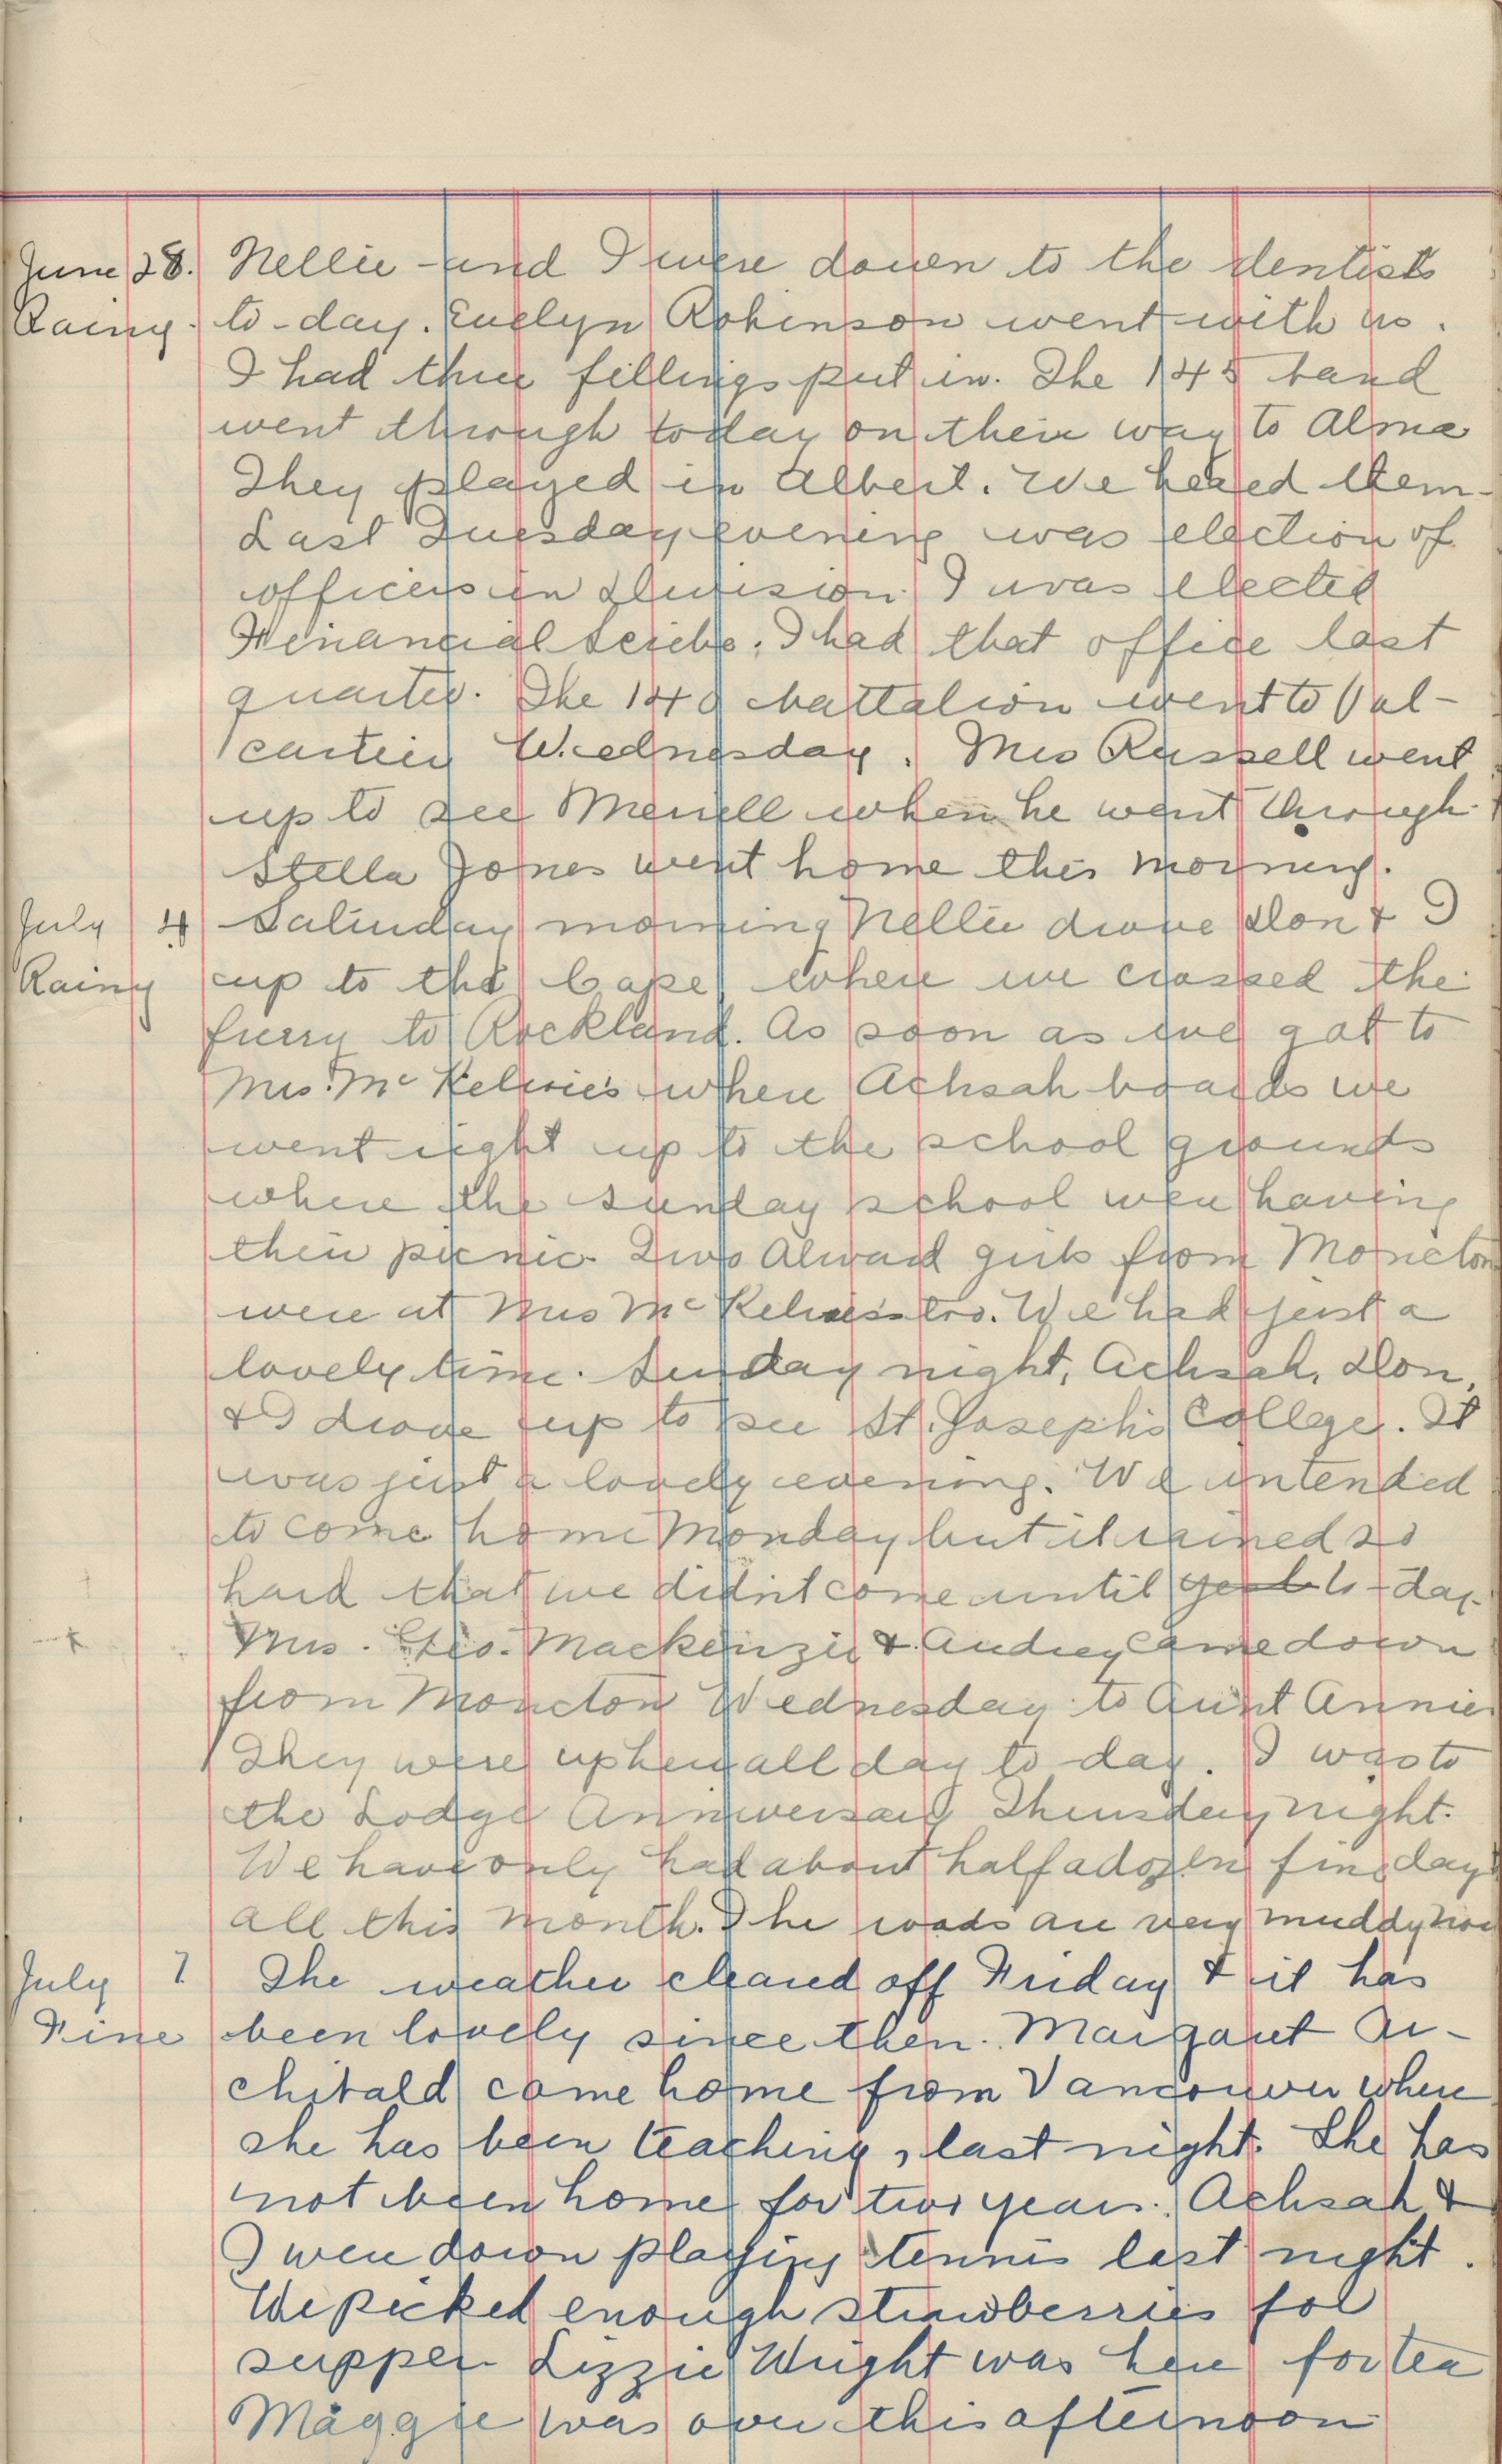 June 28. Nellie and I were down to the dentists
Rainy. to-day. Evelyn Robinson went with us.
I had three fillings put in. The 145 band
went through today on their way to Alma
They played in Albert. We heared them.
Last Tuesday evening was election of
officers in Division. I was elected
Financial Scribe. I had that office last
quarter. The 140 battalion went to Val-
cartier Wednesday. Mrs Russell went
up to see Merrill when he went through.
Stella Jones went home this morning.
July 4 Saturday morning Nellie drove Don & I
Rainy up to the Cape where we crossed the
furry to Rockland. As soon as we got to
Mrs. McKelvie's where Achsah boards we
went right up to the school grounds
where the Sunday school were having
their picnic. Two Alward girls from Moncton
were at Mrs McKelvies too. We had just a
lovely time. Sunday night, Achsah, Don,
& I drove up to see St. Joseph's College. It
was just a lovely evening. We intended
to come home Monday but it rained so
hard that we didn't come until yest to-day.
Mrs. Geo. Mackenzie & Audrey came down
from Moncton Wednesday to Aunt Annies
They were up here all day to-day. I was to
the Lodge Anniversary Thursday night.
We have only had about half a dozen fine days
all this month. The roads are very muddy now
July 7 The weather cleared off Friday & it has
Fine been lovely since then. Margaret Ar-
chibald came home from Vancouver where
she has been teaching, last night. She has
not been home for two years. Achsah &
I were down playing tennis last night.
We picked enough strawberries for
supper Lizzie Wright was here for tea
Maggie was over this afternoon